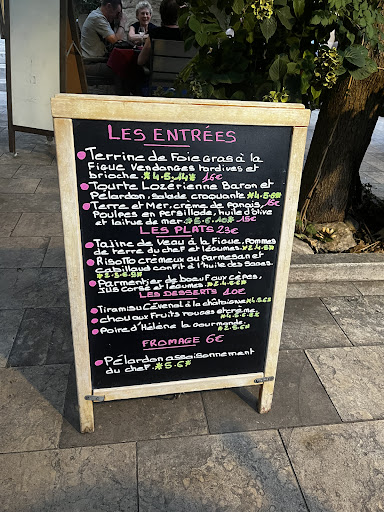 LES ENTRÉES
Terrine de Foie Gras à la
Figue Vendanges tardives et
brioche. *4.5.14* 15€
Tourte Lozérienne Baron et
Pélardon, salade croquante. *4.5.14*
Terre et Mer, crème de panais, 15€
Poulpes en persillade, huile d'olive
et laitue de mer. 15€
LES PLATS 23€
Tajine de Veau à la Figue, pommes
de terre du chef et légumes.
Risotto crémeux au parmesan et
cabillaud confit à l'huile des
Parmentier de boeuf aux cèpes,
jus corsé et légumes.
LES DESSERTS 10€
Tiramisu Cévenol à la châtaigne
chou aux fruits rouges et crème
Poire d'Hélène la gourmande.
FROMAGE 6€
Pélardon assaisonnement
du chef. *5.6*